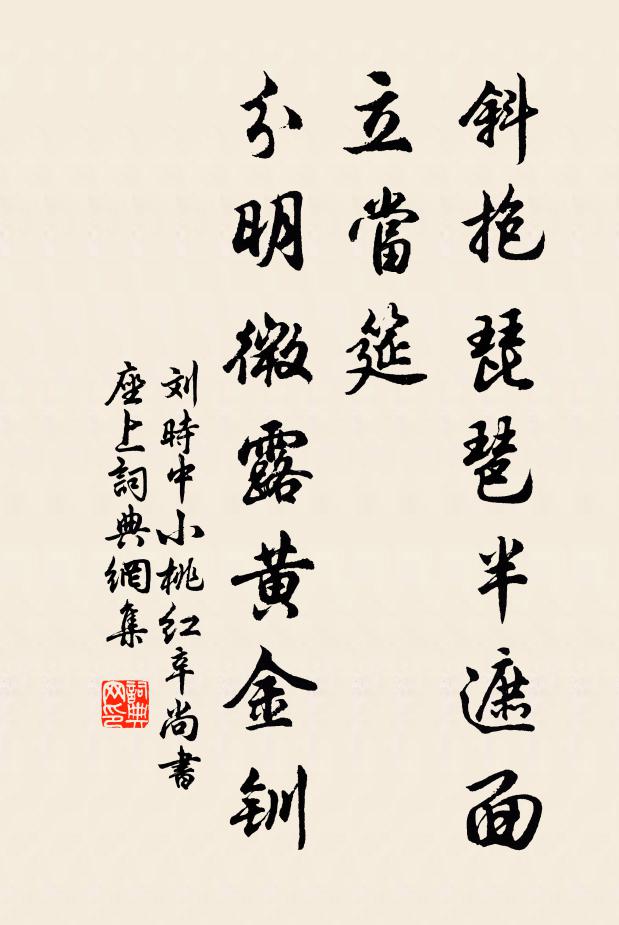 斜抱琵琶半遮面
立當筵
分明微露黄金釧
刘時中小桃紅辛尚書
座上詞典網集
詞典网印